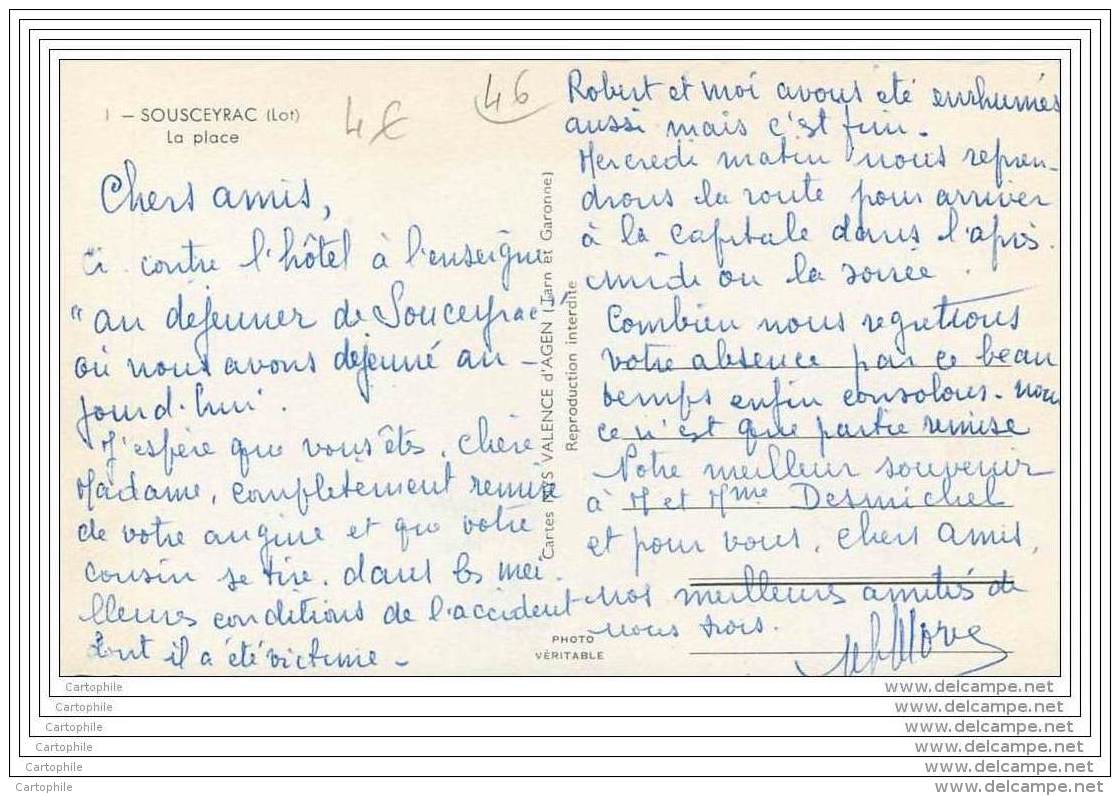 1 – SOUSCEYRAC (Lot)
La place
4€
46
Chers amis,
Ci-contre l'hôtel à l'enseigne
"au déjeuner de Souceyrac"
où nous avons déjeuné au-
jourd'hui.
J'espère que vous êtes, chère
Madame, complètement remise
de votre angine et que votre
cousin se tire, dans les mei-
lleures conditions de l'accident
dont il a été victime –
Robert et moi avons été enrhumés
aussi mais c'est fini.
Mercredi matin nous repren-
drons la route pour arriver
à la capitale dans l'après-
midi ou la soirée.
Combien nous regrettons
votre absence par ce beau
temps enfin consolons-nous
ce n'est que partie remise
Notre meilleur souvenir
à M et Mme Desmichel
et pour vous, chers amis,
nos meilleures amitiés de
nous trois.
Cartes VALENCE d'AGEN (Tarn et Garonne)
Reproduction interdite
PHOTO
VÉRITABLE
Cartophile www.delcampe.net
Cartophile www.delcampe.net
Cartophile www.delcampe.net
Cartophile www.delcampe.net
Cartophile www.delcampe.net
Cartophile www.delcampe.net